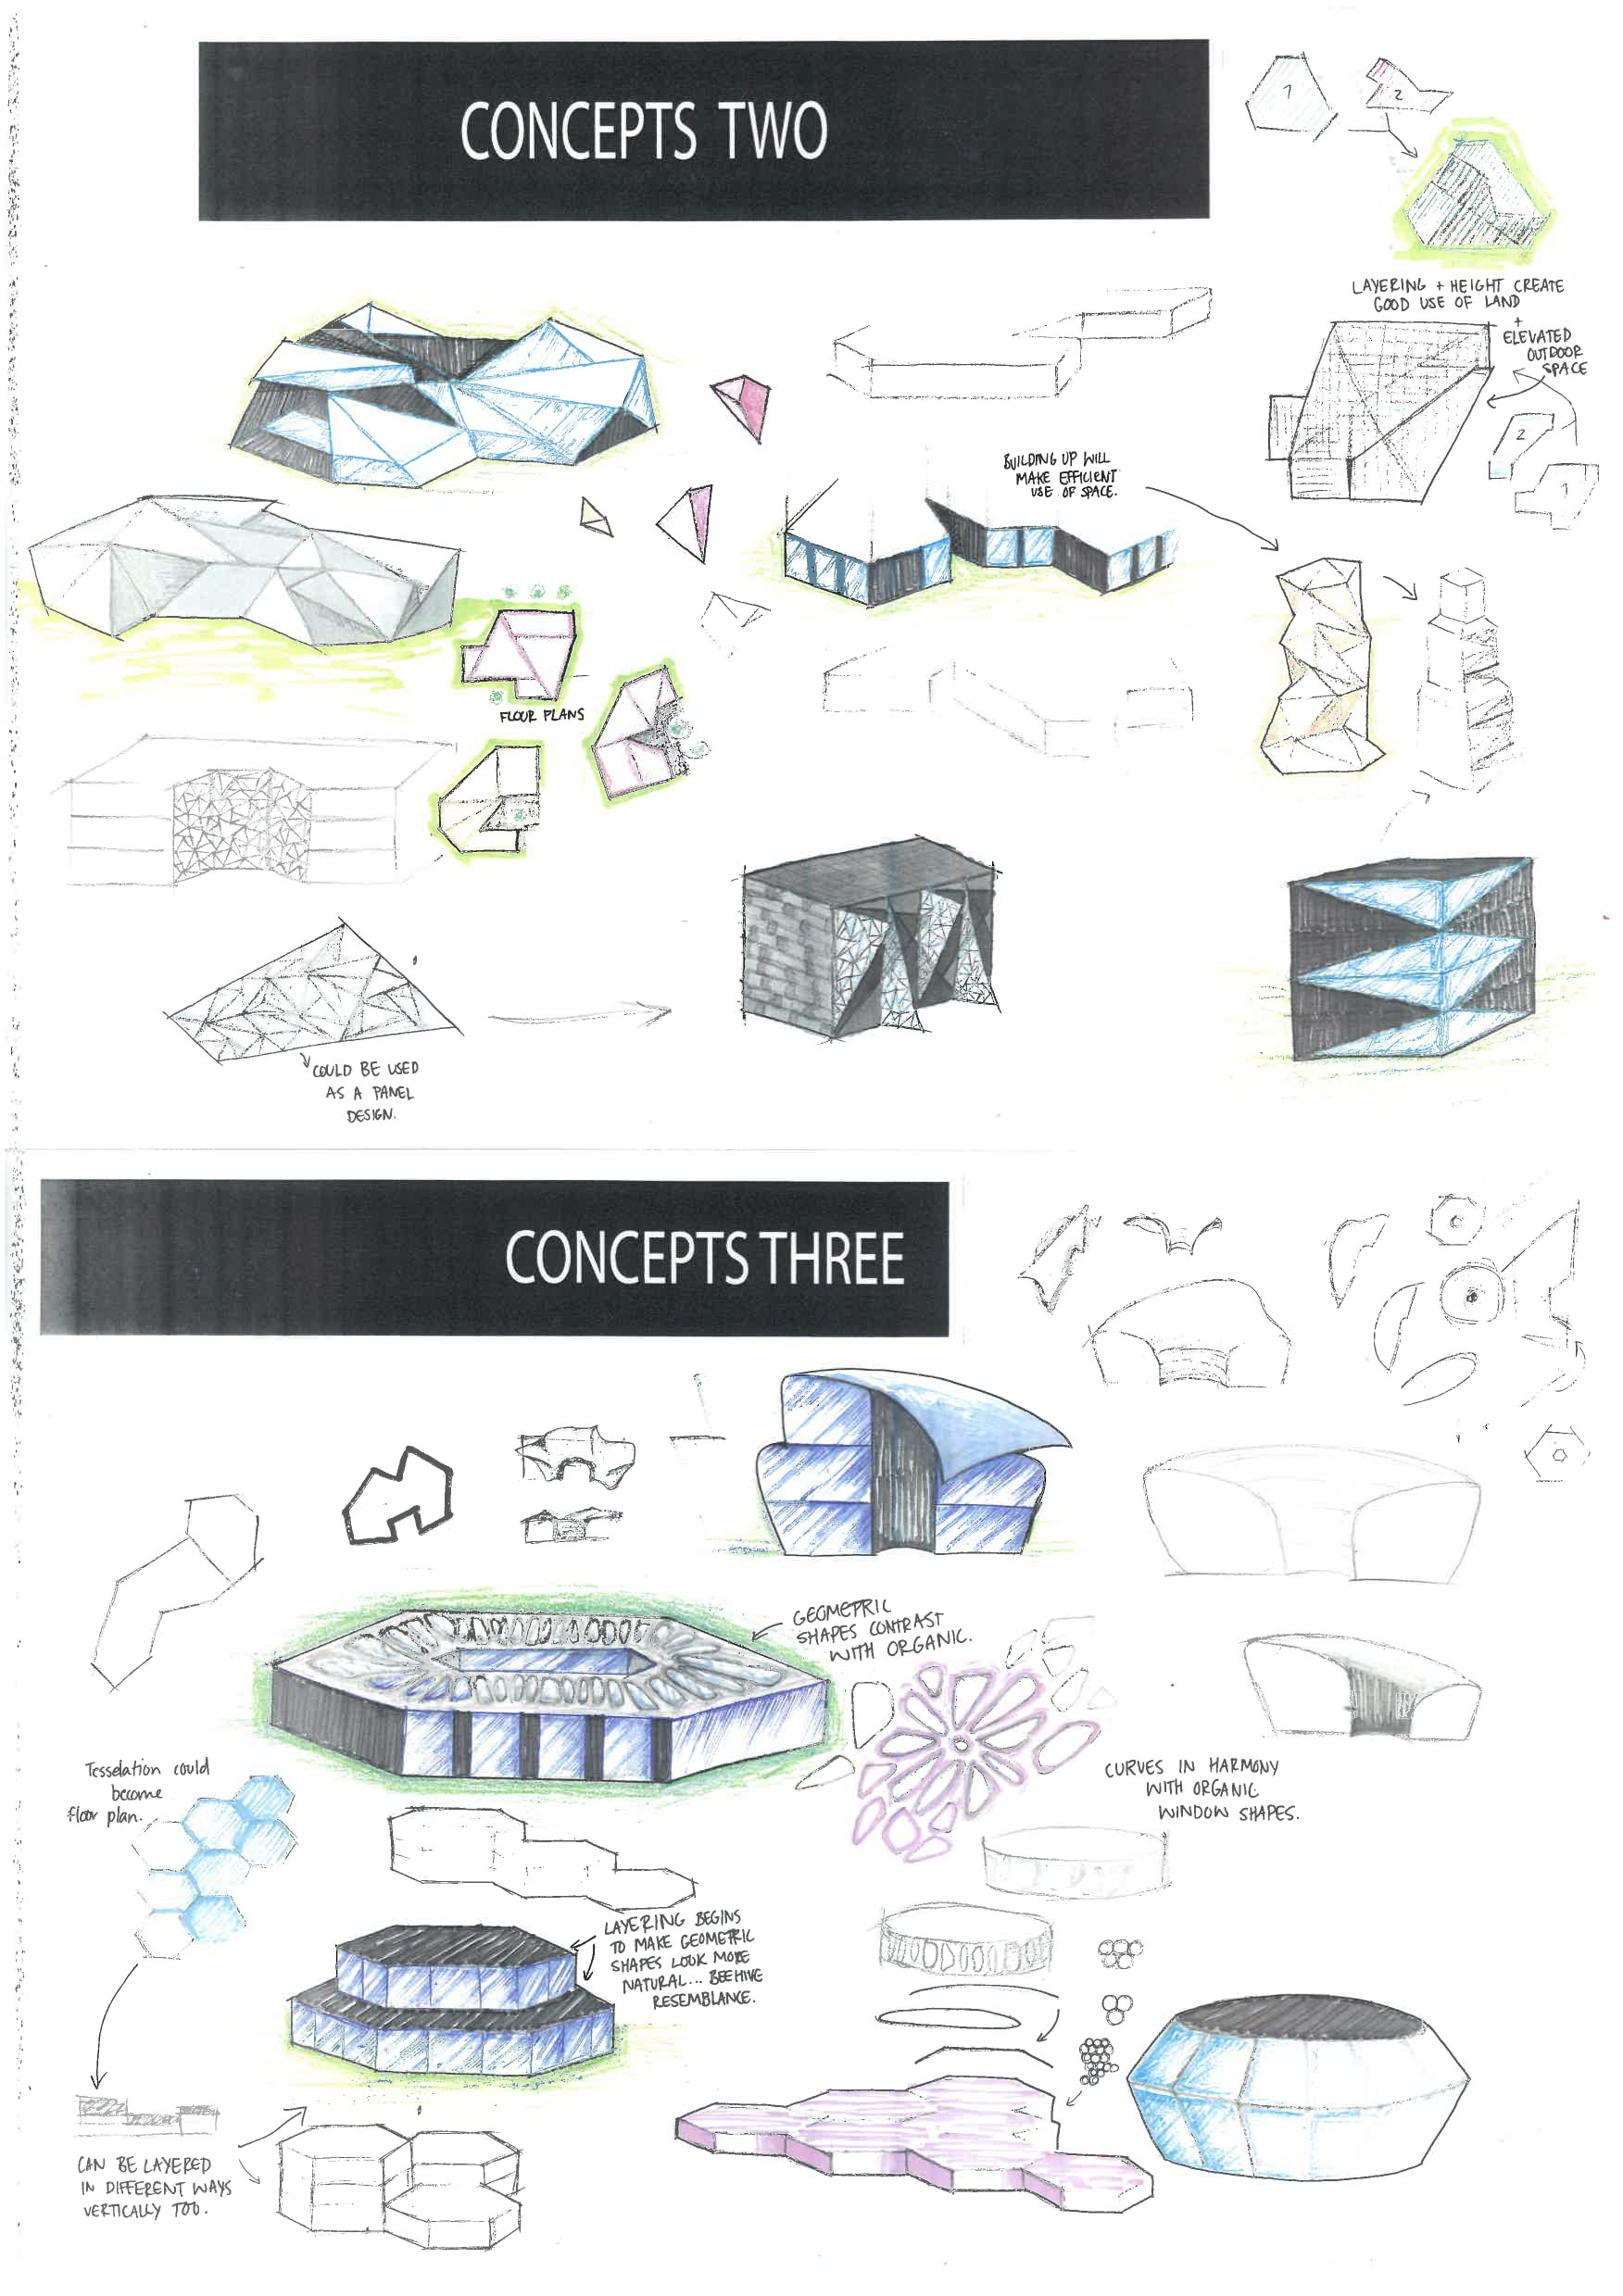 CONCEPTS TWO
1
2
LAYERING + HEIGHT CREATE
GOOD USE OF LAND
+
ELEVATED
OUTDOOR
SPACE
2
1
BUILDING UP WILL
MAKE EFFICIENT
USE OF SPACE.
FLOOR PLANS
COULD BE USED
AS A PANEL
DESIGN.
CONCEPTS THREE
GEOMETRIC
SHAPES CONTRAST
WITH ORGANIC.
CURVES IN HARMONY
WITH ORGANIC
WINDOW SHAPES.
Tesselation could
become
floor plan.
LAYERING BEGINS
TO MAKE GEOMETRIC
SHAPES LOOK MORE
NATURAL... BEEHIVE
RESEMBLANCE.
CAN BE LAYERED
IN DIFFERENT WAYS
VERTICALLY TOO.